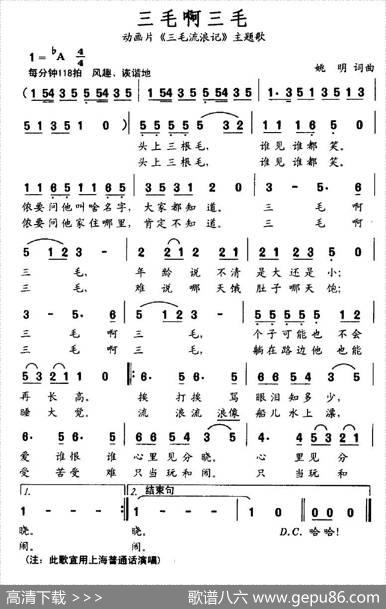 三毛啊三毛
动画片《三毛流浪记》主题歌
1=♭A 4/4
每分钟118拍 风趣、诙谐地
姚 明 词曲
(1 543 543 5 1 543 543 5 1·3 51 3513
5 1 3 5 1 0) 5 5 5 5 5 3 2 0 1 1 1 6 5 0
头上三根毛, 谁见谁都笑。
头上三根毛, 谁见谁都笑。
1 1 6 5 1 1 6 5 3 5 0 3 1 2 0 3 - 5· 6
侬要问他叫啥名字, 大家都知道。 三 毛 啊
侬要问他家住哪里, 肯定不知道。 三 毛 啊
5 1 2 3 - 2 1 2 0 2 1 2 1 1 2
三 毛, 年龄说不清 是大还是小;
三 毛, 难说哪天饿 肚子哪天饱;
3 - 5· 6 5 1 2 3 - 5 5 5 5 5 1
三 毛 啊 三 毛, 个子可能也 不会
三 毛 啊 三 毛, 躺在路边他 也能
5 3 2 1 1 0 6· 5 6· 5 6 6 5 4 3 0
再长高。 挨 打挨 骂 眼泪知多少,
睡大觉。 流 浪流 浪像 船儿水上漂,
6· 5 6· 5 6 6 5 4 3 0 6 6 5 4
爱 谁恨 谁 心里见分晓, 心里 见分
受 苦受 难 只当玩和闹。 只当 玩和
1. 2. 结束句
1 - - - 1 - - - 1 - - 0 0
晓。 晓。 D.C. 哈哈!
闹。 闹。
(注: 此歌宜用上海普通话演唱)
高清下载 >>>
歌谱八六 www.gepu86.com